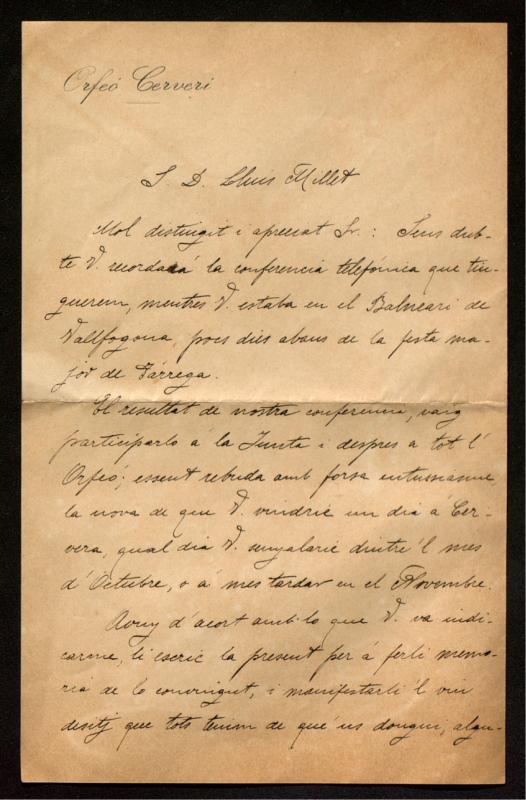 Orfeó Cerverí
S. D. Lluis Millet
Mol distingit i apreciat Sr.: Sens dub-
te V. recordará la conferencia telefónica que tin-
guerem, mentres V. estaba en el Balneari de
Vallfogona, pocs dies abans de la festa ma-
jor de Tárrega.
El resultat de nostra conferencia, vaig
participarlo á la Junta i despres a tot l'
Orfeó; essent rebuda amb forsa entussiasme,
la nova de que V. vindríe un dia á Cer-
vera, qual dia V. senyalaríe dintre'l mes
d'Octubre, o á mes tardar en el Novembre.
Avuy d'acort amb lo que V. va indi-
carme, li escric la present per á ferli memo-
ria de lo convingut, i manifestarli'l viu
desitj que tots tenim de que'ns dongui, algu-